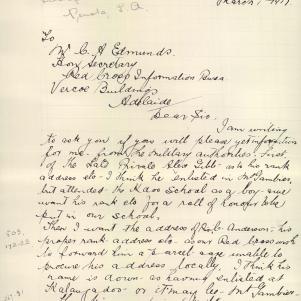 Penola, S.A.
March 1917
To
Mr C. A. Edmunds.
Hon Secretary
Red Cross Information Bureau
Verco Buildings
Adelaide
Dear Sir.
I am writing
to ask you if you will please get information
for me, from the military authorities. First
of the Late Private Alex Gibb - ask his rank
address etc - I think he enlisted in Mt Gambier,
but attended the School as a boy - we
want his rank etc for a roll of honor to be
put in our school.
Then I want the address of Anderson - his
proper rank address etc - as our Red Cross wish
to forward him a and are unable to
procure his address locally. I think his
name is down as having enlisted at
Kalangadoo or it may be Mt Gambier